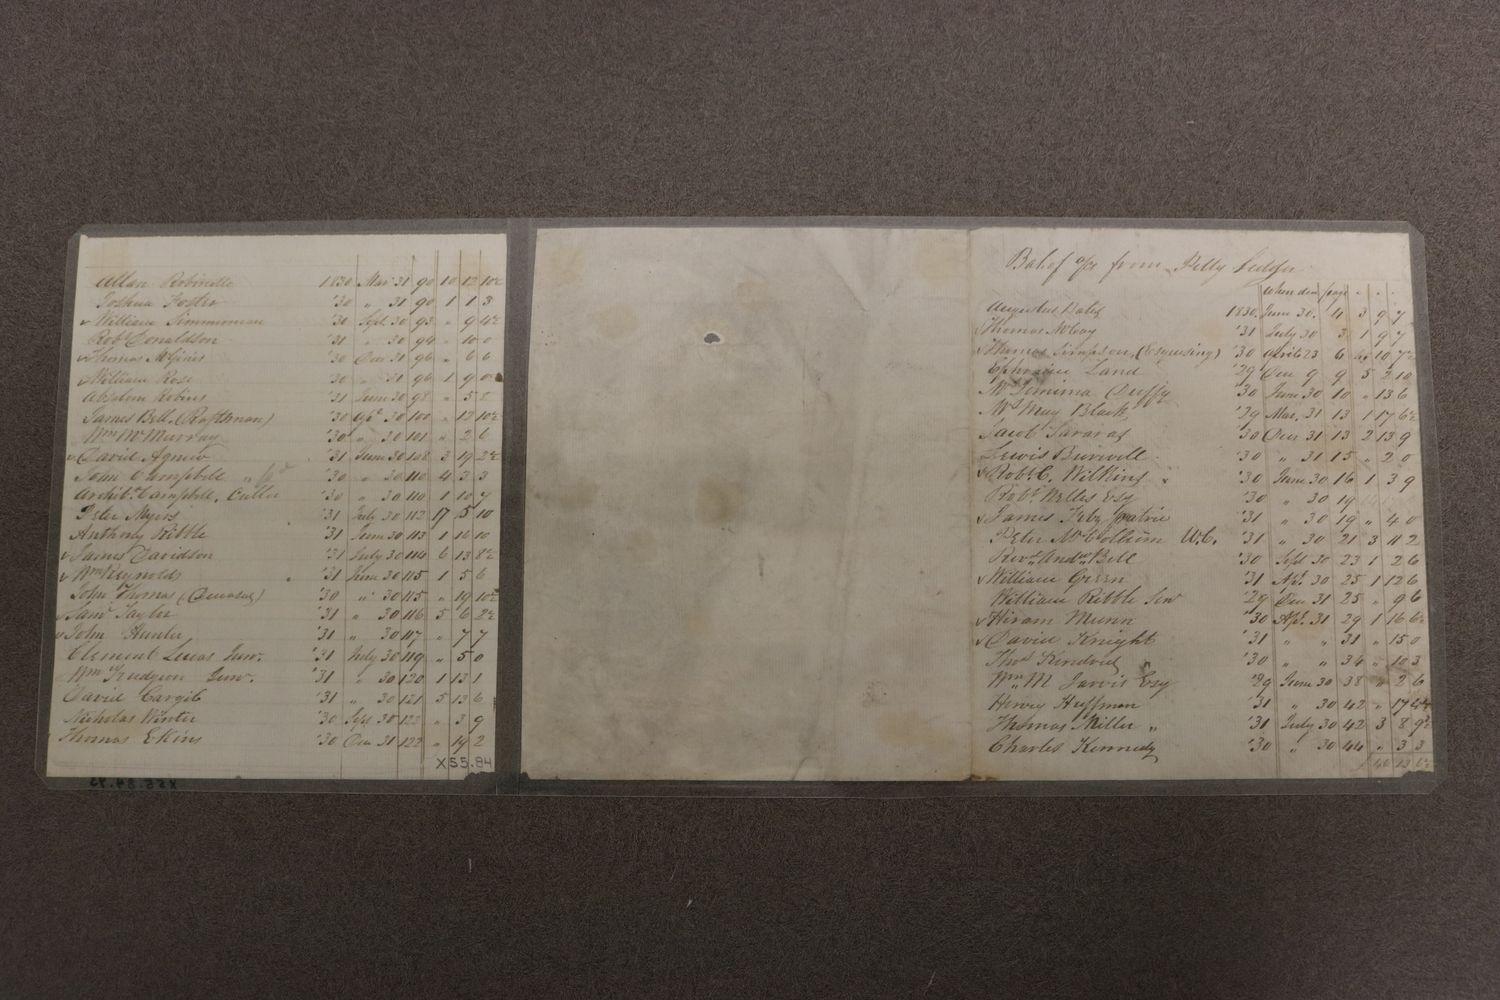 Allan Robinette 1830 Mar 31 90 10 12 10½
Joshua Foster '30 " 31 90 1 1 3
v William Simmerman '31 Sept 30 93 " 9 4½
Robt Donaldson '31 " 30 94 " 10 0
v Thomas McGinis '30 Dec 31 96 " 6 6
v William Rose '30 " 31 96 1 9
Absolom Robins '31 June 30 98 " 5
James Bell (Raftsman) '30 30 100 " 12 10½
Wm McMurray '30 " 30 101 " 2 6
v David Agnew '31 June 30 108 3 19 2½
John Campbell '30 " 30 110 4 3 3
Archibd Campbell, Culler '30 " 30 110 1 10 7
Peter Myers '31 July 30 112 17 5 10
Anthony Ribble '31 June 30 113 1 16 10
v James Davidson '31 July 30 114 6 13 8½
v Wm Reynolds '31 June 30 115 1 5 6
John Thomas '30 " 30 115 " 19 10½
v Saml Taylor '31 " 30 116 5 6 2½
v John Hunter '31 " 30 117 " 7 7
Clement Lucas Junr. '31 July 30 119 " 5 0
Wm Gudgeon Junr. '31 " 30 120 1 13 1
David Cargil '31 " 30 121 5 13 6
Nicholas Winter '30 Sept 30 122 " 3 9
Thomas Ekins '30 Dec 31 122 " 19 2
X55.84
Bal of a/cs from Petty Ledger
When due page " " "
Augustus Bates 1830. June 30. 4 3 9 7
v Thomas McCay '31 July 30 3 1 9 7
v Thomas Simpson, (Esquesing) '30 April 23 6 10 7½
Ephraim Land '29 Dec 9 9 5 2 10
Mrs Jemima Duffy 30 June 30 10 " 13 6
Mrs May Black '29 Mar. 31 13 1 17 6½
Jacob 30 Dec 31 13 2 13 9
Lewis Burwell 30 " 31 15 " 2 0
v Robt C. Wilkins '30 June 30 16 1 3 9
Robt Willis Esq '30 " 30 19
v James Kirkpatric '31 " 30 19 " 4 0
Peter McCollum W.C. '31 " 30 21 3 11 2
Revd Andw Bell '30 Sept 30 23 1 2 6
v William Green '31 Apl 30 25 1 12 6
William Ribble Senr '29 Dec 31 25 " 9 6
v Hiram Munn '30 Apl. 31 29 1 16 6½
v David Knight '31 " " 31 " 15 0
Thos Kendrick '30 " " 34 " 10 3
Wm M Jarvis Esq '29 June 30 38 " 2 6
Henry Huffman '31 " 30 42 " 17
Thomas Miller " '31 July 30 42 3 8 9½
Charles Kennedy '30 " 30 44 " 3 3